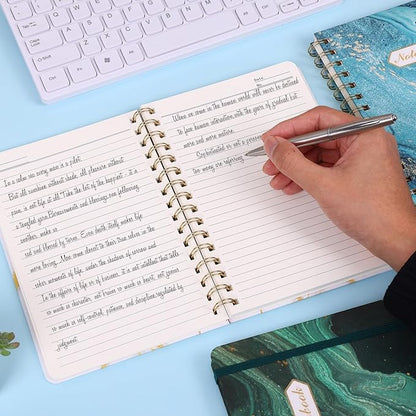 In a calm sea every man is a pilot.
But all sunshine without shade, all pleasure without
pain, is not life at all. Take the lot of the happiest - it is
a tangled yarn. Bereavements and blessings, one following
another, make us
sad and blessed by turns. Even death itself makes life
more loving. Men come closest to their true selves in the
sober moments of life, under the shadows of sorrow and
loss.
In the affairs of life or of business, it is not intellect that tells
so much as character, not brains so much as heart, not genius
so much as self-control, patience, and discipline, regulated by
judgment.
Date
When we come in the human world will never be defined
to four human interaction, with the years of gradually but
more and more mature.
Sophisticated is not a
too many are referring
Notebook
Notebook